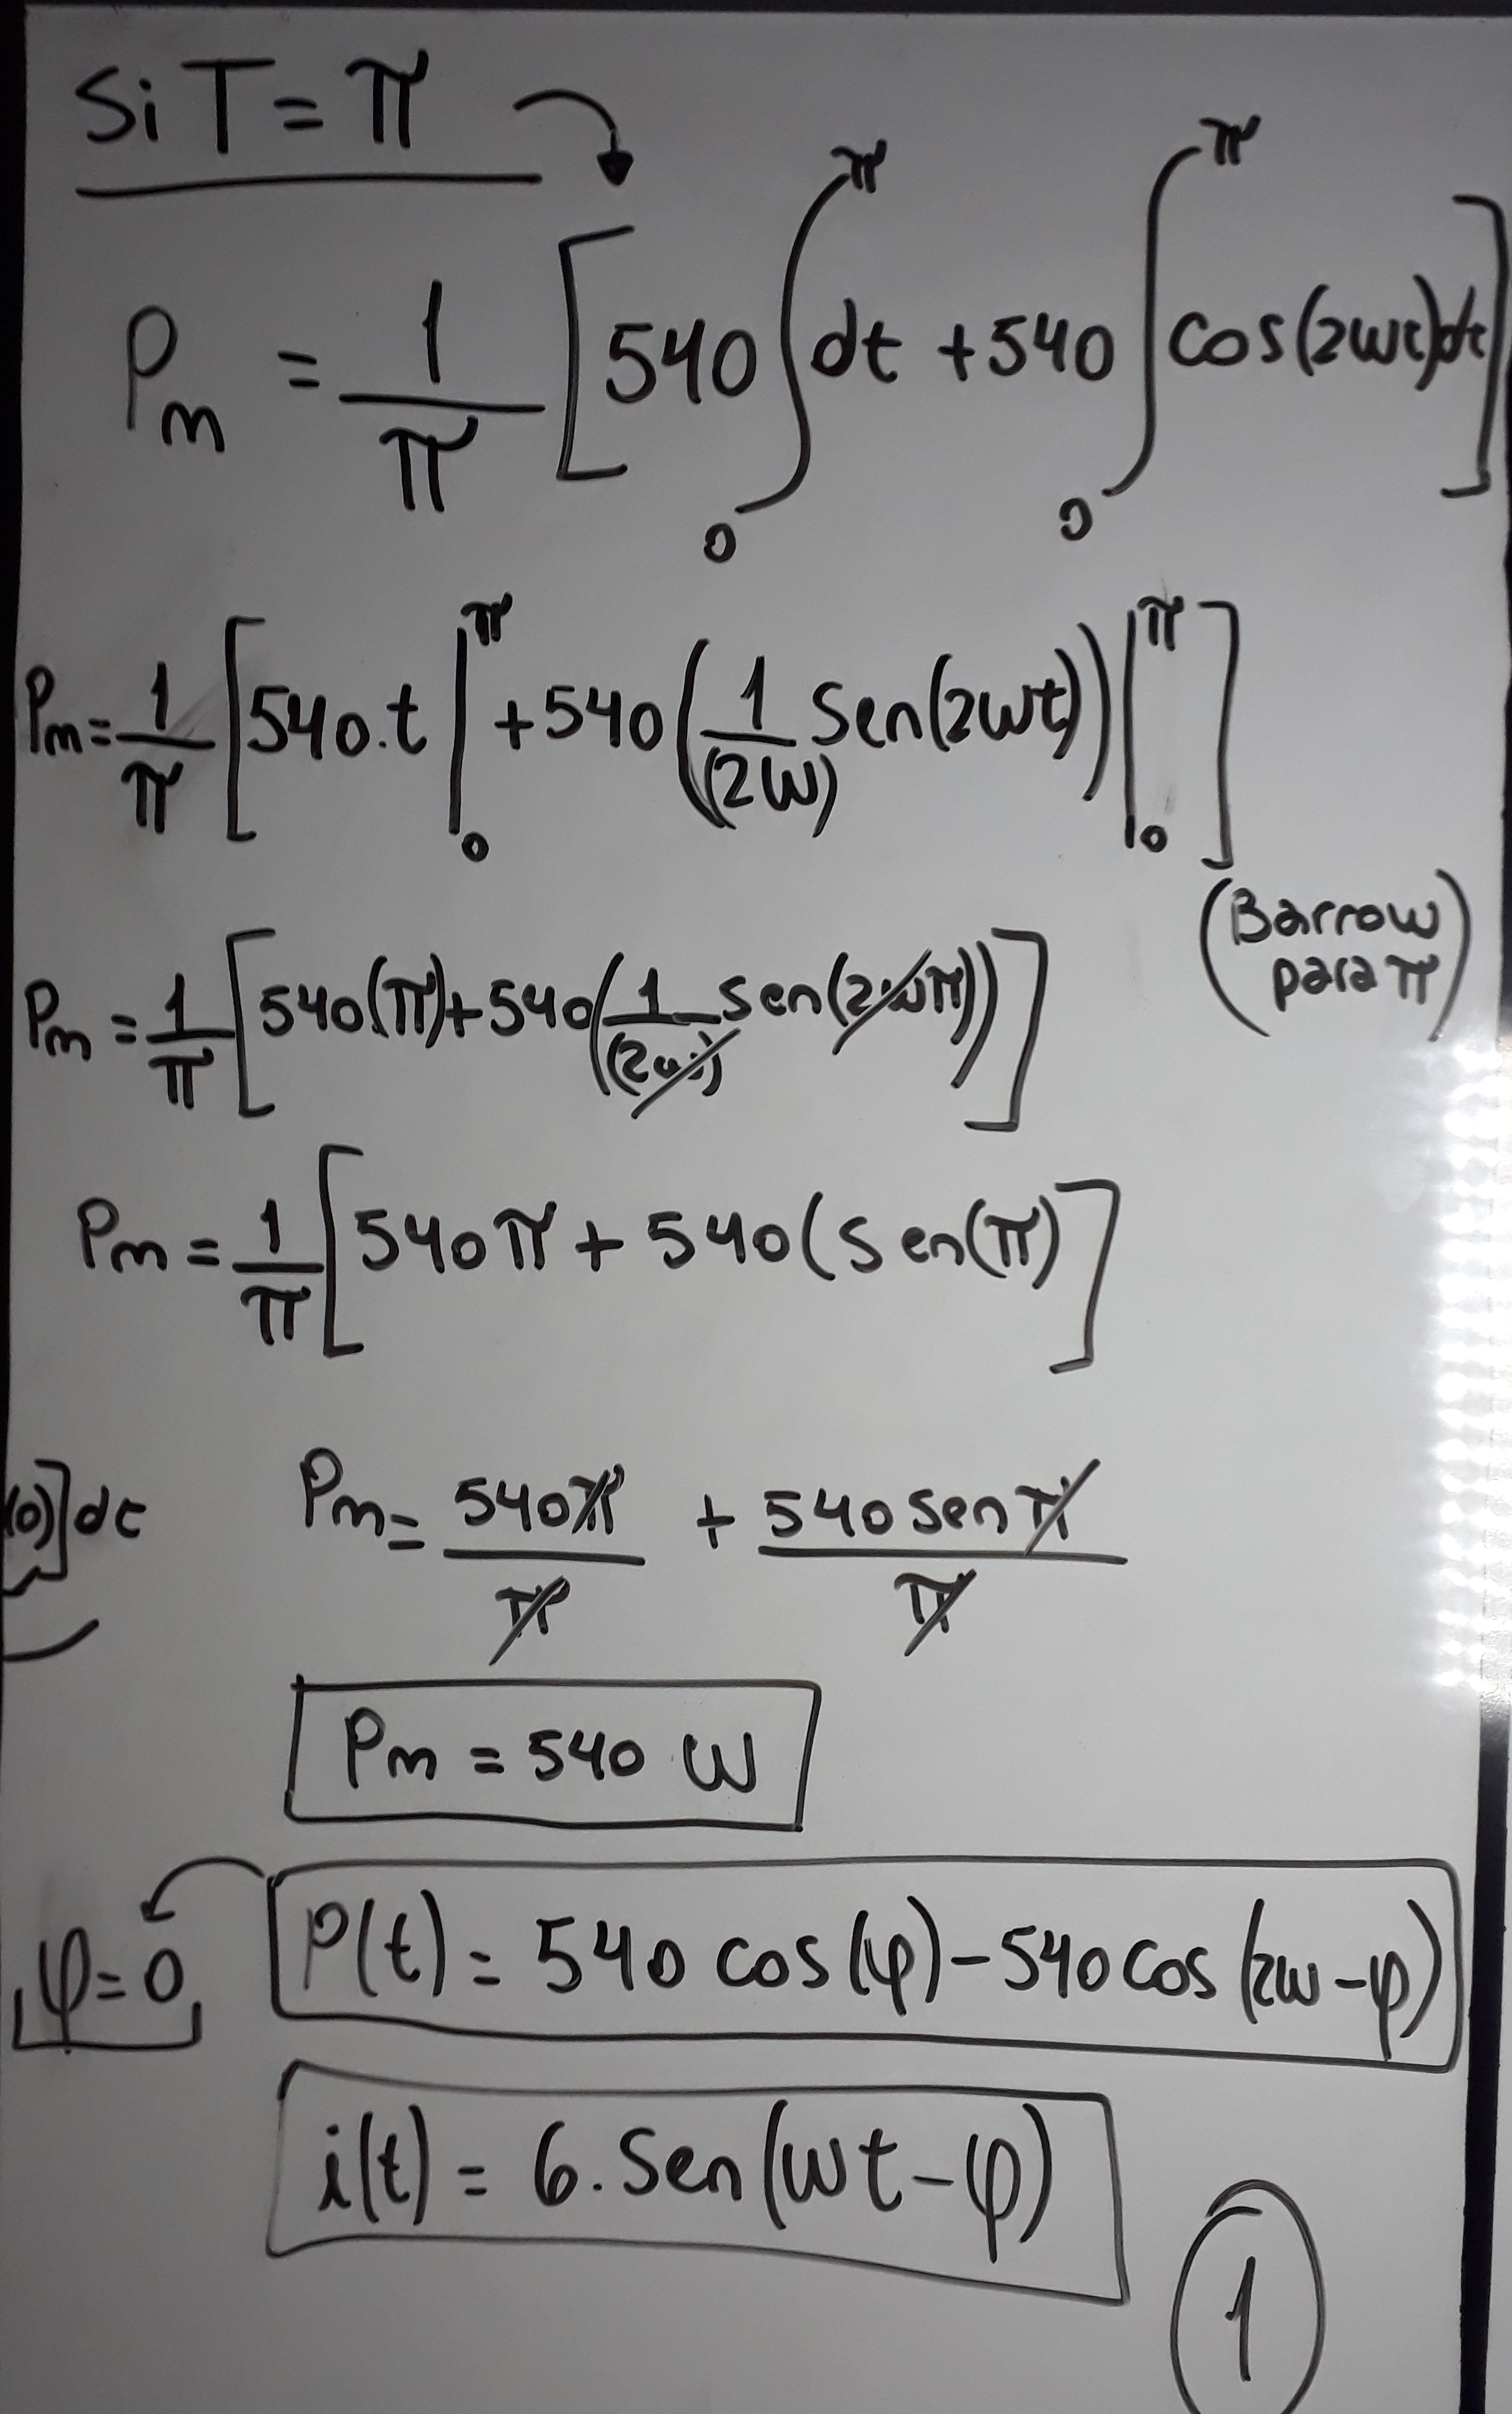 Si T = π
Pm = 1/π [540 ∫₀^π dt + 540 ∫₀^π cos(2wt)dt]
Pm = 1/π [540.t |₀^π + 540 (1/(2w) Sen(2wt)) |₀^π]
(Barrow para π)
Pm = 1/π [540(π) + 540 (1/(2w) Sen(2wπ))]
Pm = 1/π [540π + 540(Sen(π)]
(0)]dt
Pm = 540π/π + 540 Sen π/π
Pm = 540 W
φ=0
P(t) = 540 cos(φ) - 540 cos(2w-φ)
i(t) = 6. Sen(wt-φ)
1